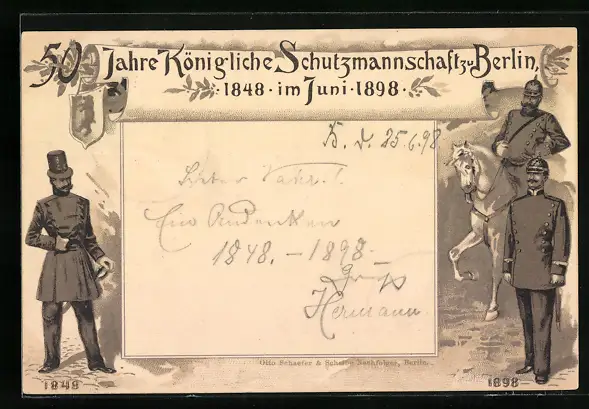 50 Jahre Königliche Schutzmannschaft zu Berlin,
1848 · im Juni · 1898 ·
B. d. 25.6.98
Lieber Vater!
Ein Andenken
1848. – 1898 –
Gruß
Hermann
Otto Schaefer & Scheibe Nachfolger, Berlin.
1848
1898